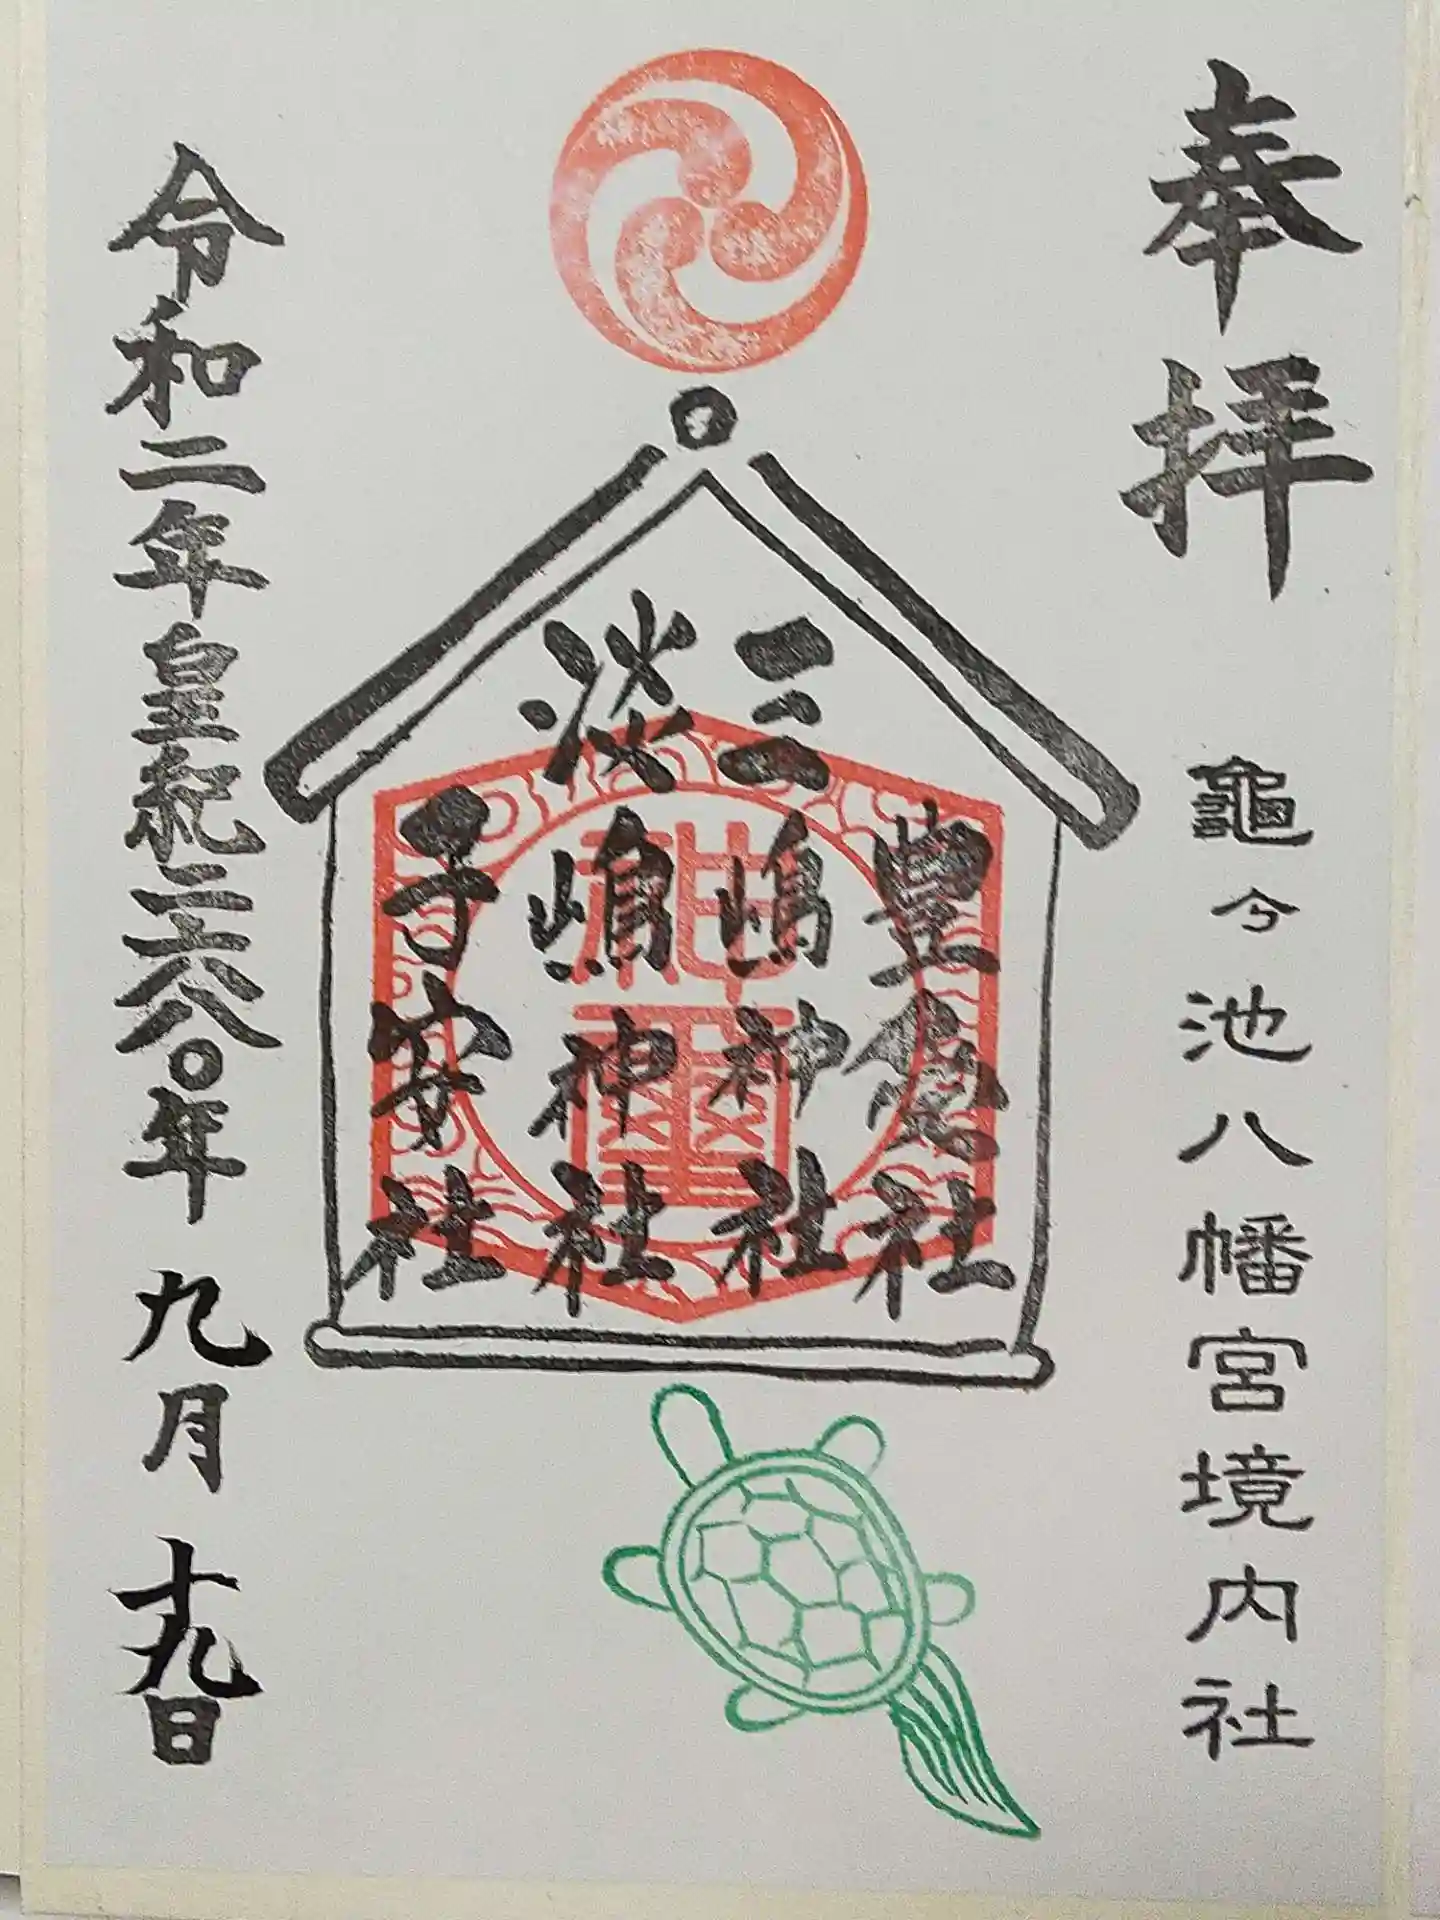 奉拝
龜ヶ池八幡宮境内社
豊社
三嶋神社
淡嶋神社
子安社
神璽
令和二年皇紀二六八〇年九月十九日